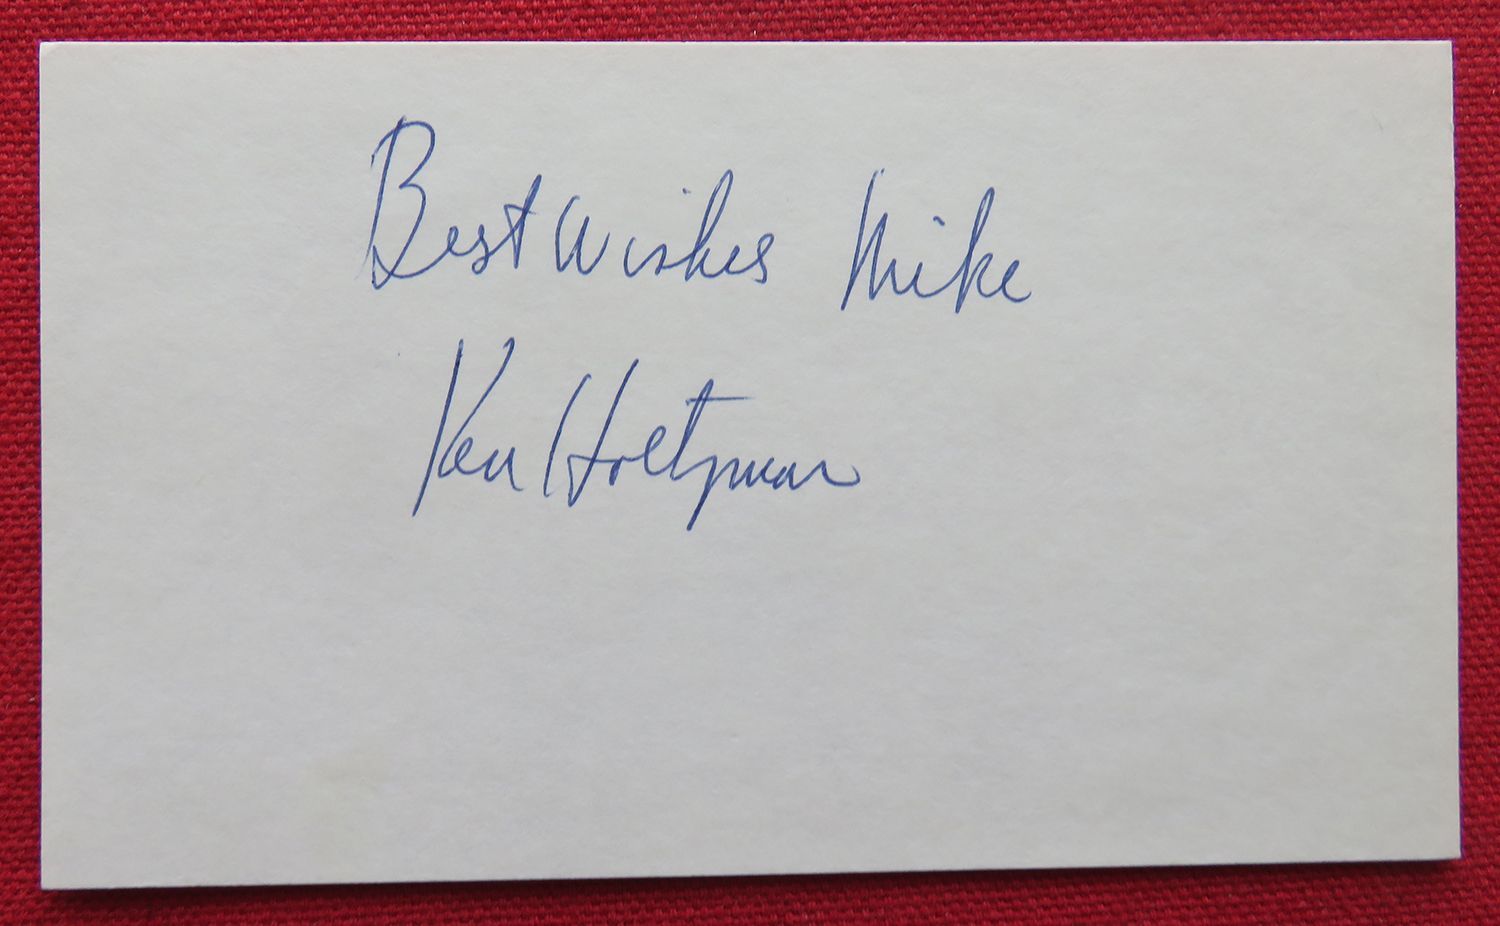 Best Wishes Mike
Ken Holtzman